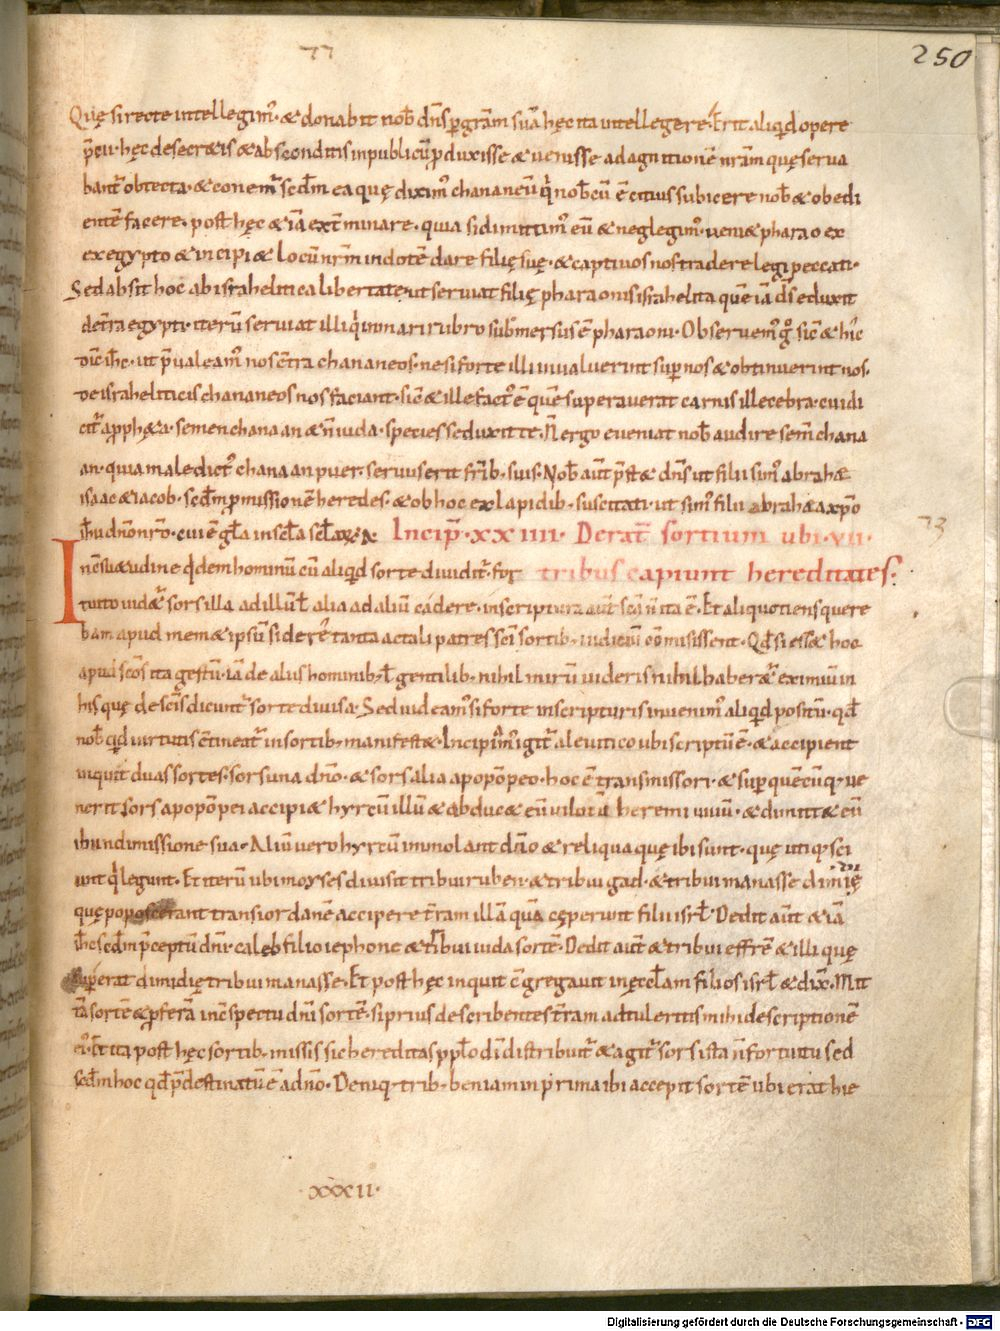 77
250
Quę si recte intellegim᷒· & donabit nob̅ dn̅s ꝑ gr̅am suā hęc ita intellegere· Erit aliqd opere
p̅ciū· hęc de secr&is & absconditis in publicū ꝓduxisse & uenisse ad agnitionē nr̅am quę serua
bant᷒ obtecta· & conem᷒ scd̅m ea quę dixim᷒ chananeū qͥ nob̅cū ē citius subicere nob̅ & obedi
entē facere· post hęc & iā ext̅minare· quia si dimittim᷒ eū & neglegim᷒· ueni& pharao ex
ex egypto & incipi& locū nr̅m in dotē dare filię suę· & captiuos nos tradere legi peccati·
Sed absit hoc ab israhelitica libertate ut seruiat filię pharaonis israhelita quē iā ds̅ eduxit
de tr̅a egypti· iterū seruiat illi qͥ in mari rubro submersus ē pharaoni· Obseruem᷒ gͦ sic̅ & hic
dic̅ ih̅c· ut p̅ualeam᷒ nos c̅tra chananeos· ne si forte illi inualuerint suꝑ nos & obtinuerint nos·
de israheliticis chananeos nos faciant· sic̅ & ille fact᷒ ē quē superauerat carnis illecebra· cui di
cit᷒ a proph&a· semen chanaan & n̅ iuda· species seduxit te· N̅ ergo eueniat nob̅ audire sem̅ chana
an· quia maledict᷒ chanaan puer· seruus erit fr̅ib· suis· Nob̅ aut̅ p̅st& dn̅s ut filii sim᷒ abrahę
isaac & iacob· scd̅m ꝓmissionē heredes· & ob hoc ex lapidib· suscitati· ut sim᷒ filii abrahę a xp̅o
ih̅u dn̅o nr̅o· cui ē gl̅a in scl̅a scl̅o℞ am̅· Incip̅· xxiiii· De rat̅ sortium ubi· vii·
In c̅suetudine qdem hominū cū aliqd sorte diuidit᷒· for tribus capiunt hereditates·
tuito uid&᷒ sors illa ad illū l̅ alia ad aliū cadere· in scriptura aut̅ sc̅a n̅ ita ē· Et aliquotiens quere
bam apud mem&ipsū si dere̅ tanta ac tali patres sc̅i sortib· iudiciū c̅misissent· Qd si ess& hoc
apud sc̅os ita gestū· iā de aliis hominib· l̅ gentilib· nihil mirū uideris nihil haber&᷒ eximiū in
his quę de sc̅is dicunt᷒ sorte diuisa· Sed uideam᷒ si forte in scripturis inuenim᷒ aliqd positū· qd
nob̅ qd uirtutis c̅tineat᷒ in sortib· manifest&· Incipiam᷒ igit᷒ a leuitico ubi scriptū ē· & accipient
inquit duas sortes· sors una dn̅o· & sors alia apopōpeo· hoc ē transmissori· & suꝑ quēcūq· ue
nerit sors apopōpei accipi& hyrcū illū & abduc& eū uiloiū heremi uiuū· & dimitt& eū
ibi in dimissione sua· Aliū uero hyrcū immolant dn̅o & reliqua quę ibi sunt· quę utiq· sci
unt qͥ legunt· Et iterū ubi moyses diuisit tribui ruben· & tribui gad· & tribui manasse dimię
quę poposcerant trans iordanē accipere tr̅am illā quā cęperunt filii isrl̅· Dedit aut̅ & iā
ih̅c scd̅m p̅ceptū dn̅i· caleb filio iephone & tribui iuda sortē· Dedit aut̅ & tribui effrē & illi quę
supererat dimidię tribui manasse· Et post hęc inquit c̅gregauit in ęccl̅am filios isrl̅ & dix̅· Mit
tā sortē & ꝓferā in c̅spectu dn̅i sortē· si prius describentes tr̅am adtuleritis mihi descriptionē
ei᷒· Et ita post hęc sortib· missis sic hereditas ppl̅o di̅ distribuit᷒ & agit᷒ sors ista n̅ fortuitu sed
scd̅m hoc qd p̅destinatū ē a dn̅o· Deniq· trib· beniamin prima ibi accepit sortē ubi erat hie
73
xxxii·
Digitalisierung gefördert durch die Deutsche Forschungsgemeinschaft - DFG